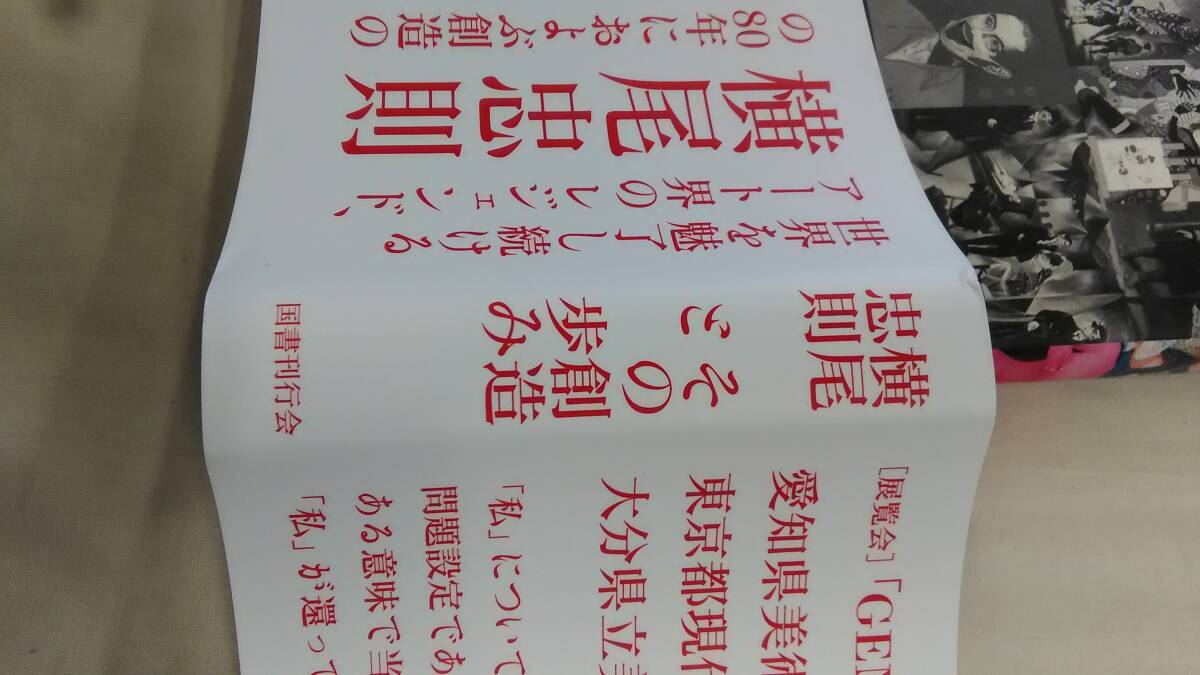 世界を魅了し続ける
アート界のレジェンド、
横尾忠則
の80年におよぶ創造の
横尾
忠則
その創造
と歩み
国書刊行会
［展覧会］「GEN
愛知県美術
東京都現代
大分県立美
「私」について
問題設定であ
ある意味で当
「私」が還って